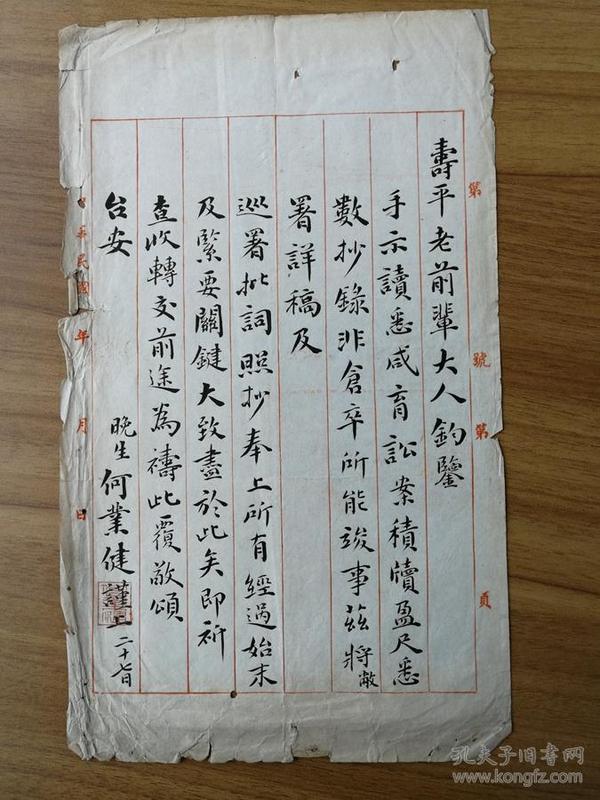 第 號 第 頁
壽平老前輩大人鈞鑒
手示讀悉咸育訟案積牘盈尺悉
數抄錄非倉卒所能竣事茲將敝
署詳稿及
巡署批詞照抄奉上所有經過始末
及緊要關鍵大致盡於此矣即祈
查收轉交前途為禱此覆敬頌
台安
晚生何業健謹上二十七日
中華民國 年 月 日
孔夫子旧书网
www.kongfz.com